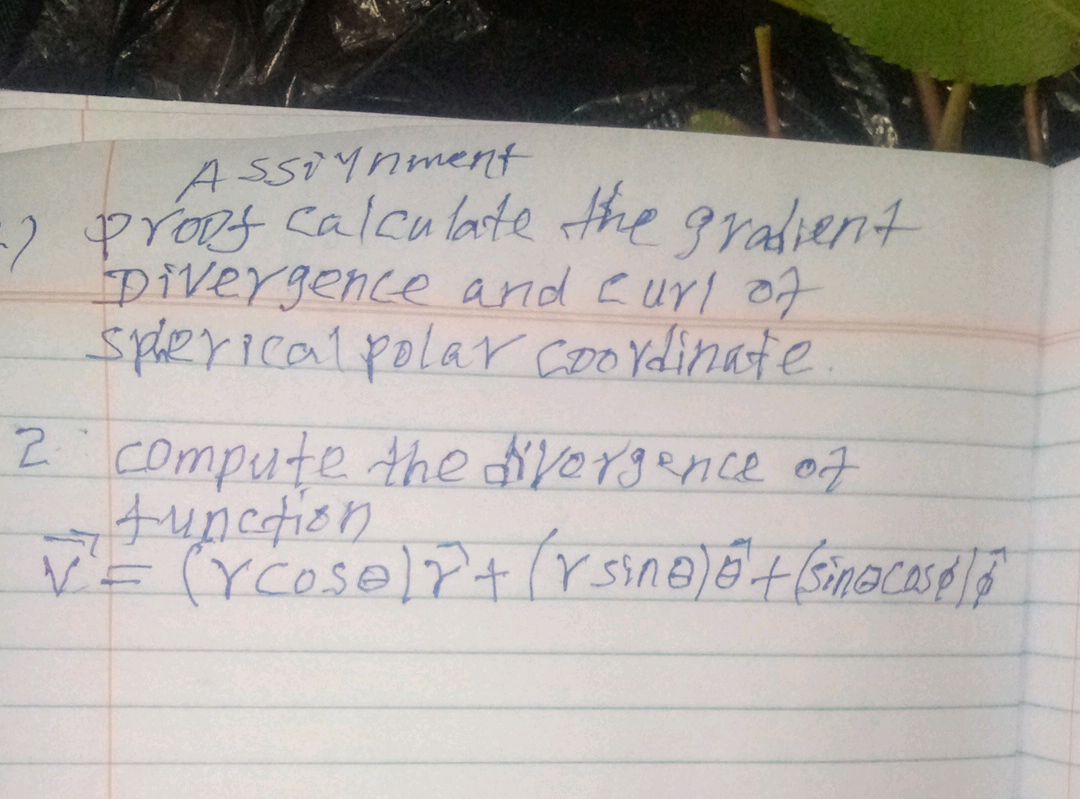 Assignment
1) proof calculate the gradient
Divergence and curl of
spherical polar coordinate.
2. compute the divergence of
function
V⃗ = (r cosθ) r⃗ + (r sinθ) θ⃗ + (sinθ cosϕ) ϕ⃗